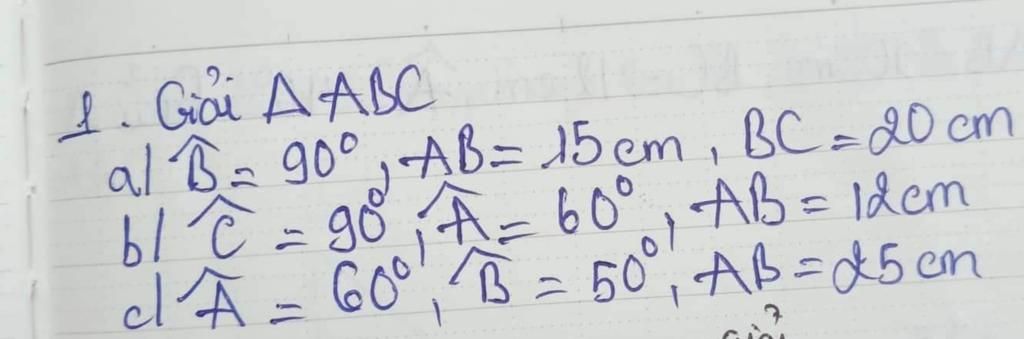 1. Giải Δ ABC
a/ B̂ = 90°, AB = 15 cm, BC = 20 cm
b/ Ĉ = 90°, Â = 60°, AB = 12 cm
c/ Â = 60°, B̂ = 50°, AB = 25 cm
Giải